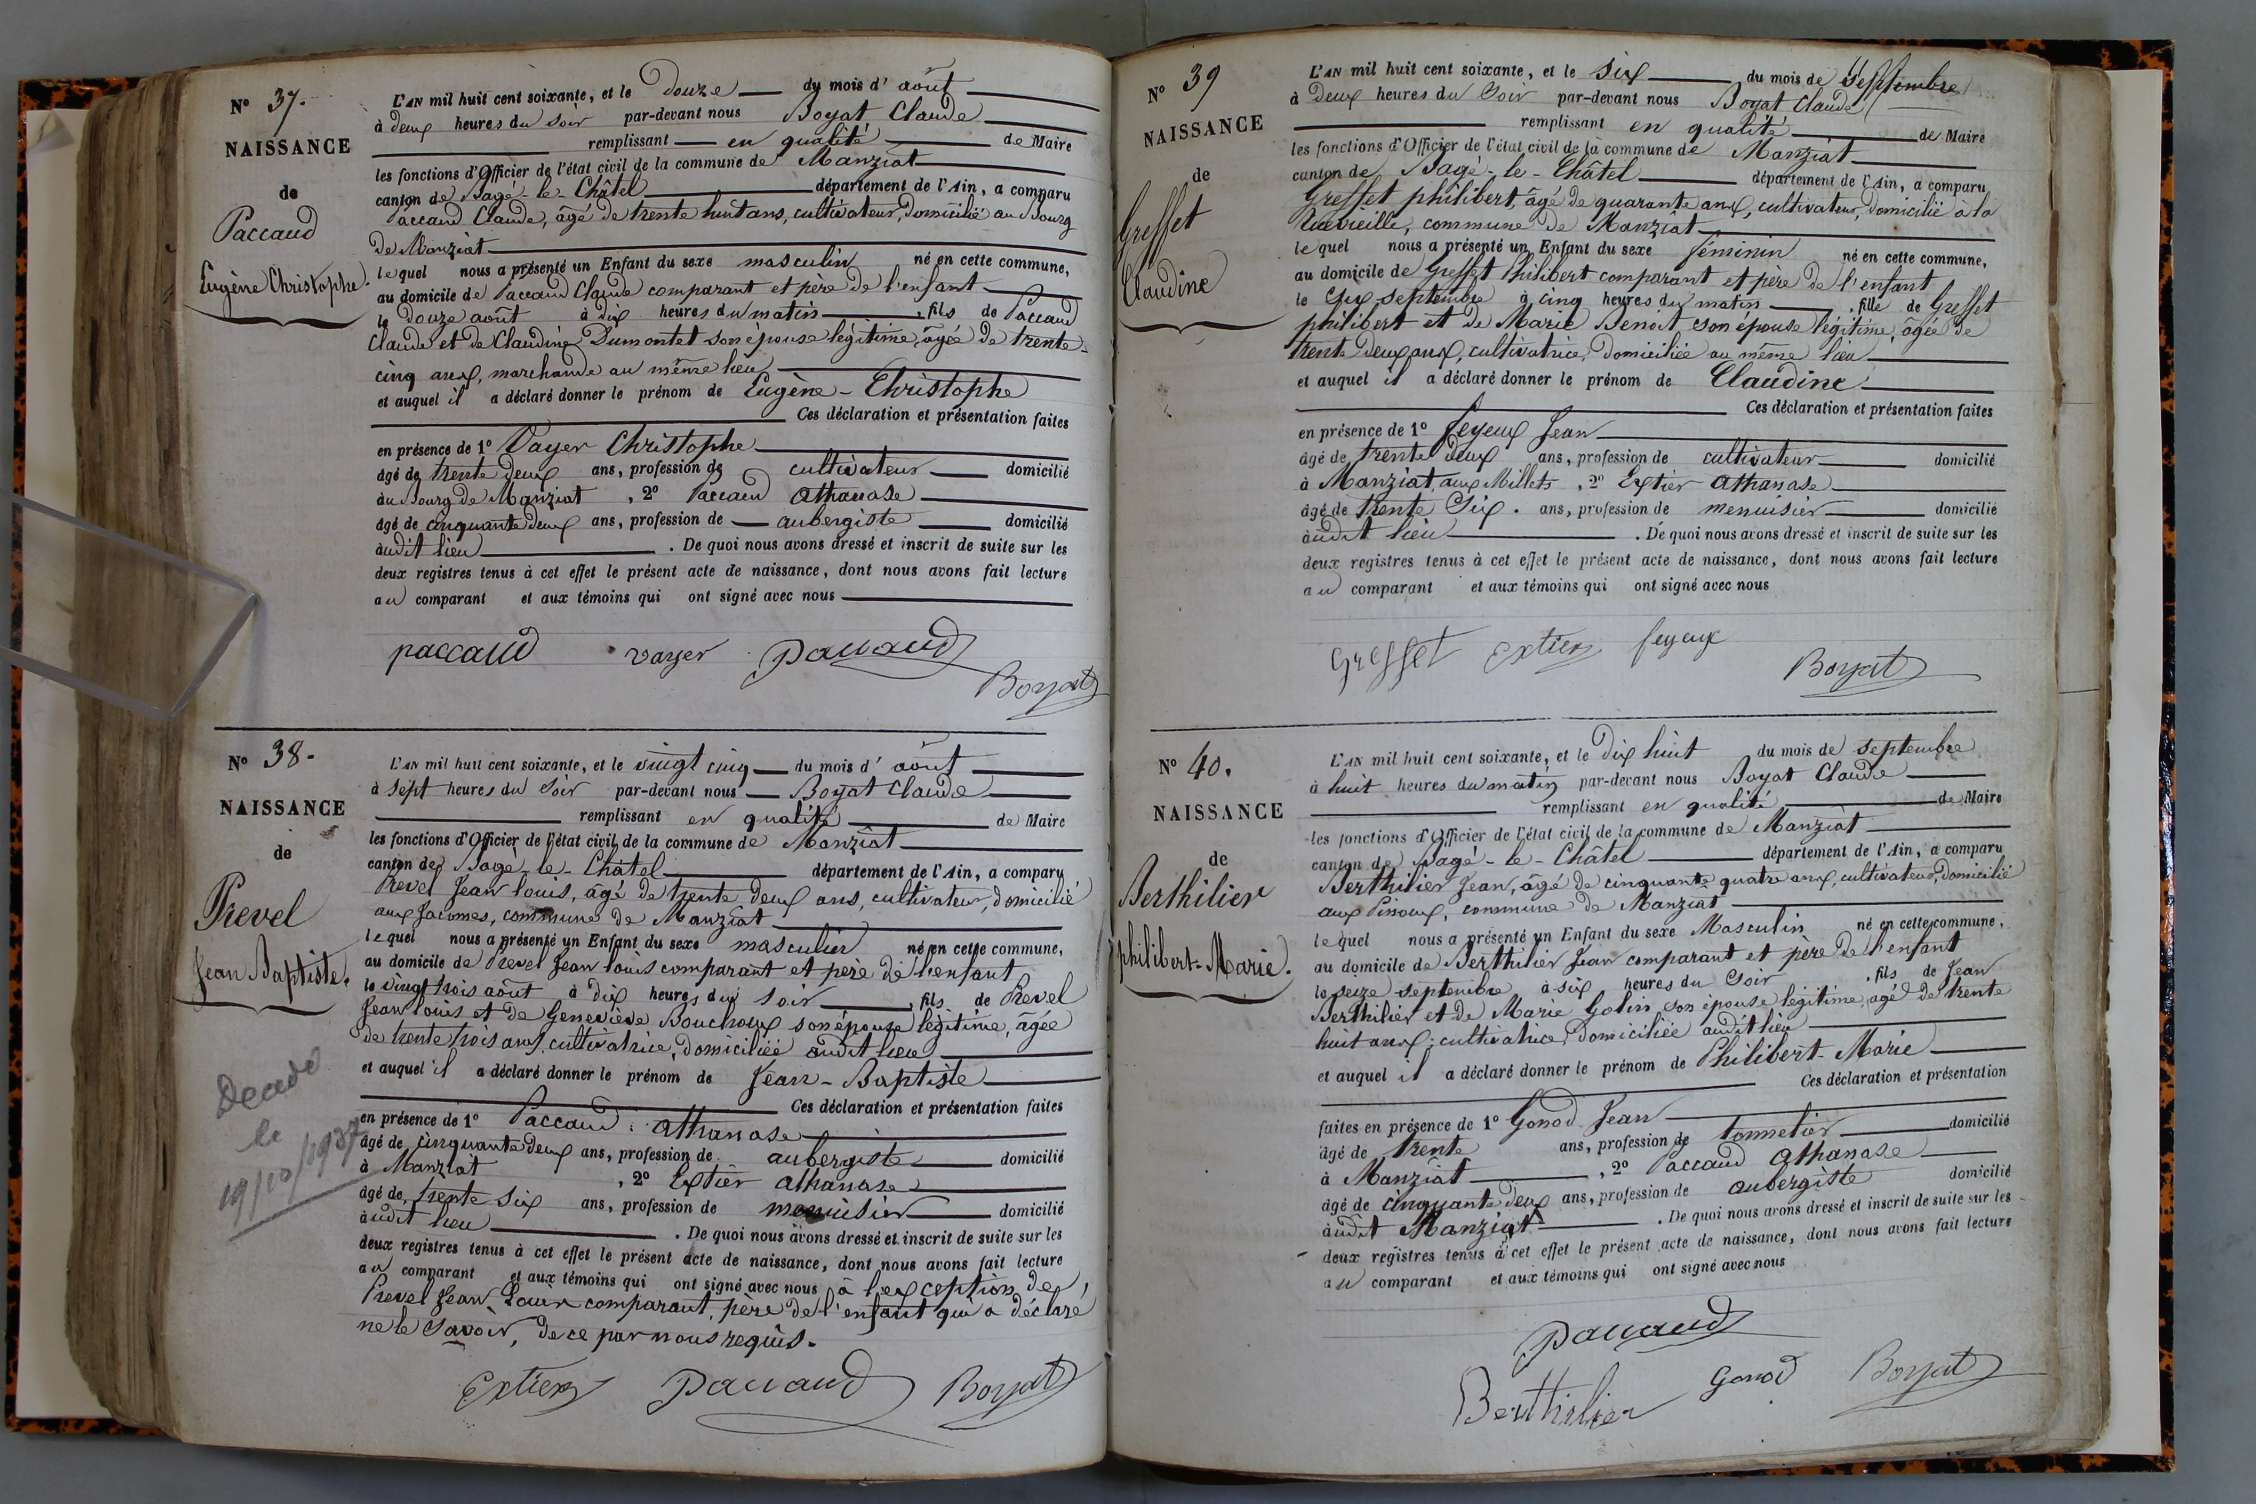 N° 37.
NAISSANCE
de
Paccaud
Eugène Christophe.
L'AN mil huit cent soixante, et le Douze du mois d' août
à deux heures du soir par-devant nous Boyat Claude
remplissant en qualité de Maire
les fonctions d'Officier de l'état civil de la commune de Manziat
canton de Bagé-le-Châtel département de l'Ain, a comparu
Paccaud Claude, âgé de trente huit ans, cultivateur, domicilié au Bourg
de Manziat
lequel nous a présenté un Enfant du sexe masculin né en cette commune,
au domicile de Paccaud Claude comparant et père de l'enfant
le douze août à dix heures du matin, fils de Paccaud
Claude et de Claudine Dumontet son épouse légitime, âgée de trente-
cinq ans, marchande au même lieu
et auquel il a déclaré donner le prénom de Eugène-Christophe
Ces déclaration et présentation faites
en présence de 1° Vayer Christophe
âgé de trente deux ans, profession de cultivateur domicilié
au Bourg de Manziat, 2° Paccaud Athanase
âgé de cinquante deux ans, profession de aubergiste domicilié
audit lieu. De quoi nous avons dressé et inscrit de suite sur les
deux registres tenus à cet effet le présent acte de naissance, dont nous avons fait lecture
au comparant et aux témoins qui ont signé avec nous
paccaud vayer Paccaud
Boyat
N° 38.
NAISSANCE
de
Prevel
Jean Baptiste.
Décédé
le
19/10/1937
L'AN mil huit cent soixante, et le vingt cinq du mois d' août
à sept heures du soir par-devant nous Boyat Claude
remplissant en qualité de Maire
les fonctions d'Officier de l'état civil de la commune de Manziat
canton de Bagé-le-Châtel département de l'Ain, a comparu
Prevel Jean Louis, âgé de trente deux ans, cultivateur, domicilié
aux Jacomes, commune de Manziat
lequel nous a présenté un Enfant du sexe masculin né en cette commune,
au domicile de Prevel Jean Louis comparant et père de l'enfant
le vingt trois août à dix heures du soir, fils de Prevel
Jean Louis et de Geneviève Bouchoux son épouse légitime, âgée
de trente trois ans, cultivatrice, domiciliée audit lieu
et auquel il a déclaré donner le prénom de Jean-Baptiste
Ces déclaration et présentation faites
en présence de 1° Paccaud Athanase
âgé de cinquante deux ans, profession de aubergiste domicilié
à Manziat, 2° Extier Athanase
âgé de trente six ans, profession de menuisier domicilié
audit lieu. De quoi nous avons dressé et inscrit de suite sur les
deux registres tenus à cet effet le présent acte de naissance, dont nous avons fait lecture
au comparant et aux témoins qui ont signé avec nous à l'exception de
Prevel Jean Louis comparant, père de l'enfant qui a déclaré
ne le savoir, de ce par nous requis.
Extier Paccaud Boyat
N° 39
NAISSANCE
de
Greffet
Claudine
L'AN mil huit cent soixante, et le six du mois de septembre
à deux heures du soir par-devant nous Boyat Claude
remplissant en qualité de Maire
les fonctions d'Officier de l'état civil de la commune de Manziat
canton de Bagé-le-Châtel département de l'Ain, a comparu
Greffet philibert, âgé de quarante ans, cultivateur, domicilié à la
commune de Manziat
lequel nous a présenté un Enfant du sexe féminin né en cette commune,
au domicile de Greffet Philibert comparant et père de l'enfant
le six septembre à cinq heures du matin, fille de Greffet
philibert et de Marie Benoit son épouse légitime, âgée de
trente deux ans, cultivatrice, domiciliée au même lieu
et auquel il a déclaré donner le prénom de Claudine
Ces déclaration et présentation faites
en présence de 1° feyeux Jean
âgé de trente deux ans, profession de cultivateur domicilié
à Manziat, aux Millets, 2° Extier Athanase
âgé de trente six. ans, profession de menuisier domicilié
audit lieu. De quoi nous avons dressé et inscrit de suite sur les
deux registres tenus à cet effet le présent acte de naissance, dont nous avons fait lecture
au comparant et aux témoins qui ont signé avec nous
greffet Extier feyeux
Boyat
N° 40.
NAISSANCE
de
Berthilier
philibert-Marie.
L'AN mil huit cent soixante, et le dix huit du mois de septembre
à huit heures du matin par-devant nous Boyat Claude
remplissant en qualité de Maire
les fonctions d'Officier de l'état civil de la commune de Manziat
canton de Bagé-le-Châtel département de l'Ain, a comparu
Berthilier Jean, âgé de cinquante quatre ans, cultivateur, domicilié
aux Pinoux, commune de Manziat
lequel nous a présenté un Enfant du sexe Masculin né en cette commune,
au domicile de Berthilier Jean comparant et père de l'enfant
le seize septembre à six heures du soir, fils de Jean
Berthilier et de Marie Golin son épouse légitime, âgée de trente
huit ans, cultivatrice, domiciliée audit lieu
et auquel il a déclaré donner le prénom de Philibert-Marie
Ces déclaration et présentation
faites en présence de 1° Gonod Jean
âgé de trente ans, profession de tonnelier domicilié
à Manziat, 2° Paccaud Athanase
âgé de cinquante deux ans, profession de aubergiste domicilié
audit Manziat. De quoi nous avons dressé et inscrit de suite sur les
deux registres tenus à cet effet le présent acte de naissance, dont nous avons fait lecture
au comparant et aux témoins qui ont signé avec nous
Paccaud
Berthilier Gonod Boyat